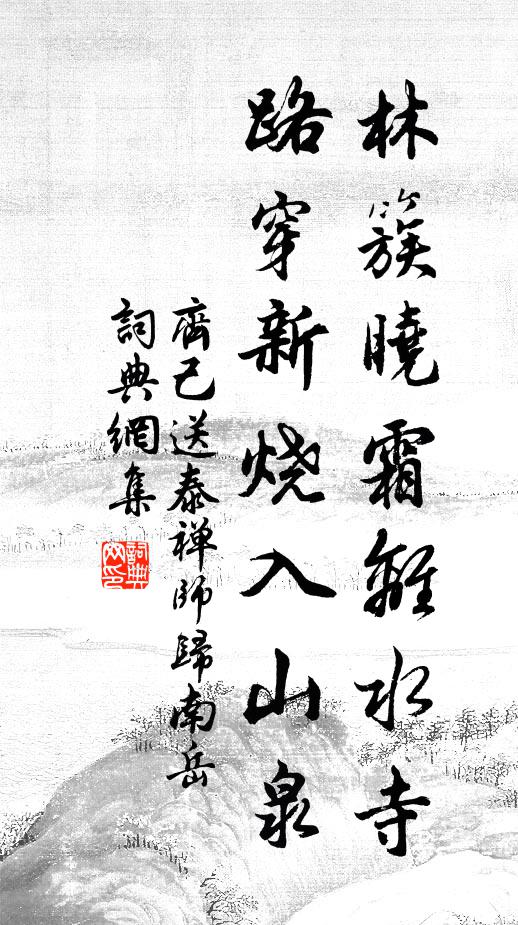 林簇曉霜離水寺
路穿新燒入山泉
齊己送泰禅師歸南岳
詞典網集
詞典网印